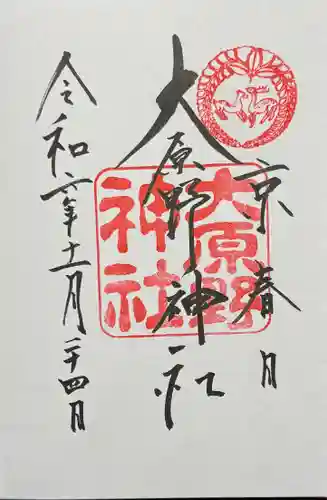 京春日
大原野神社
大原野
神社
令和六年十一月二十四月